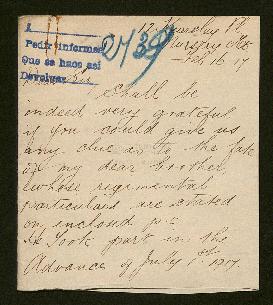 1
Pedir informes
Que se haga así
Devolver
2439
Pl
Feb 16 17
Sir
I shall be
indeed very grateful
if you could give us
any clue as to the fate
of my dear brother
whose regimental
particulars are stated
on inclosed p.c
He took part in the
Advance of July 1st 1917.